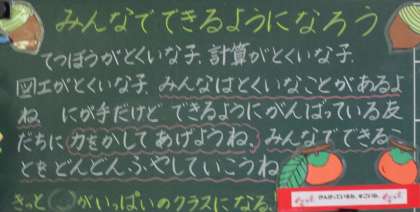 みんなでできるようになろう
てつぼうがとくいな子、計算がとくいな子、
図工がとくいな子、みんなはとくいなことがあるよ
ね。にが手だけど、できるようにがんばっている友
だちに力をかしてあげようね。みんなでできるこ
とをどんどんふやしていこうね
きっと がいっぱいのクラスになる!